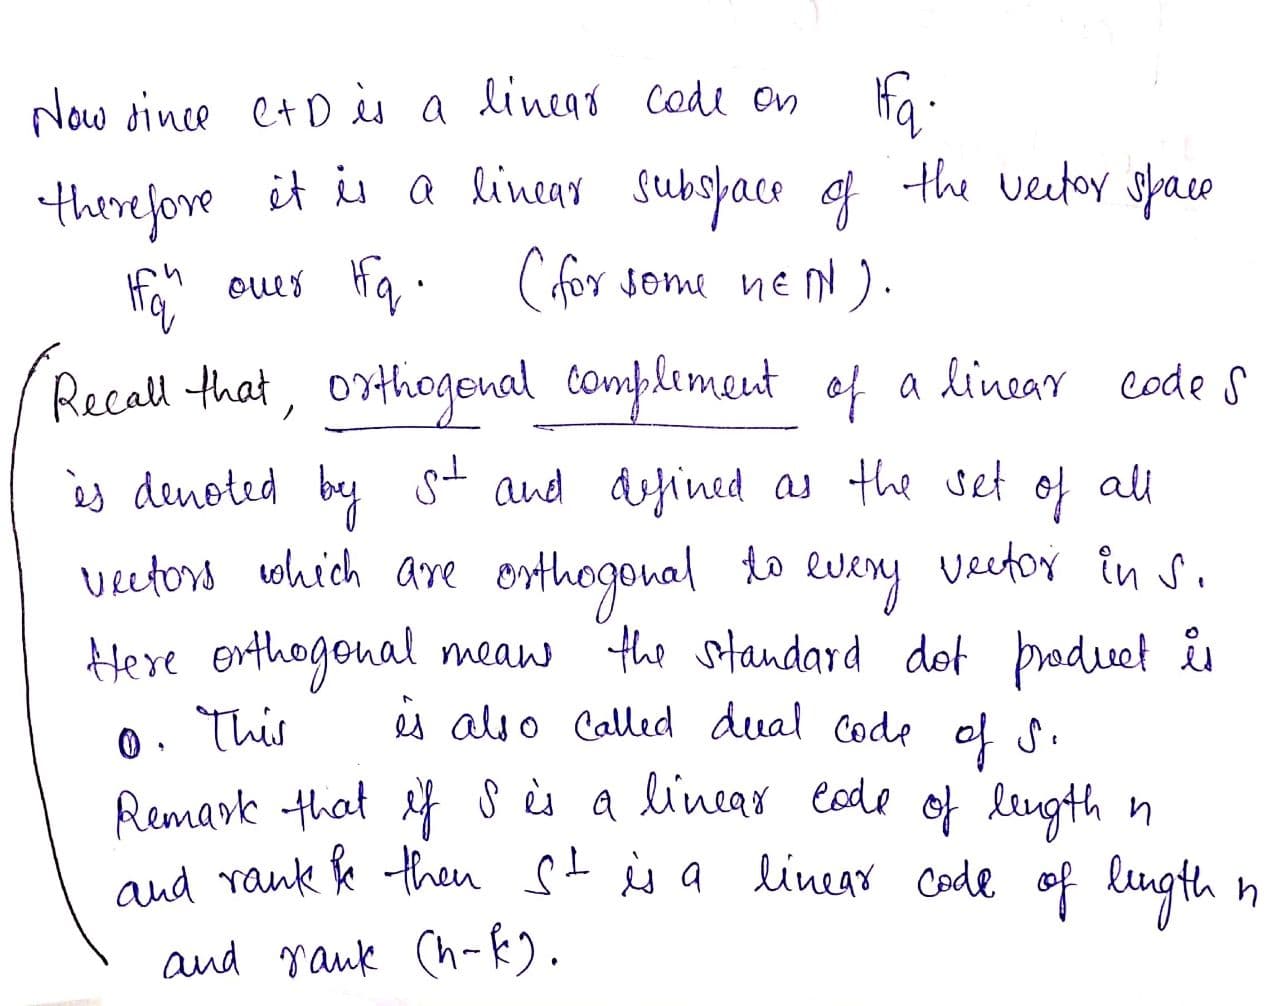 Now since C+D is a linear code on 𝔽q.
therefore it is a linear subspace of the vector space
𝔽qⁿ over 𝔽q. (for some n∈ℕ).
Recall that, orthogonal complement of a linear code S
is denoted by S⊥ and defined as the set of all
vectors which are orthogonal to every vector in S.
Here orthogonal means the standard dot product is
0. This is also called dual code of S.
Remark that if S is a linear code of length n
and rank k then S⊥ is a linear code of length n
and rank (n-k).